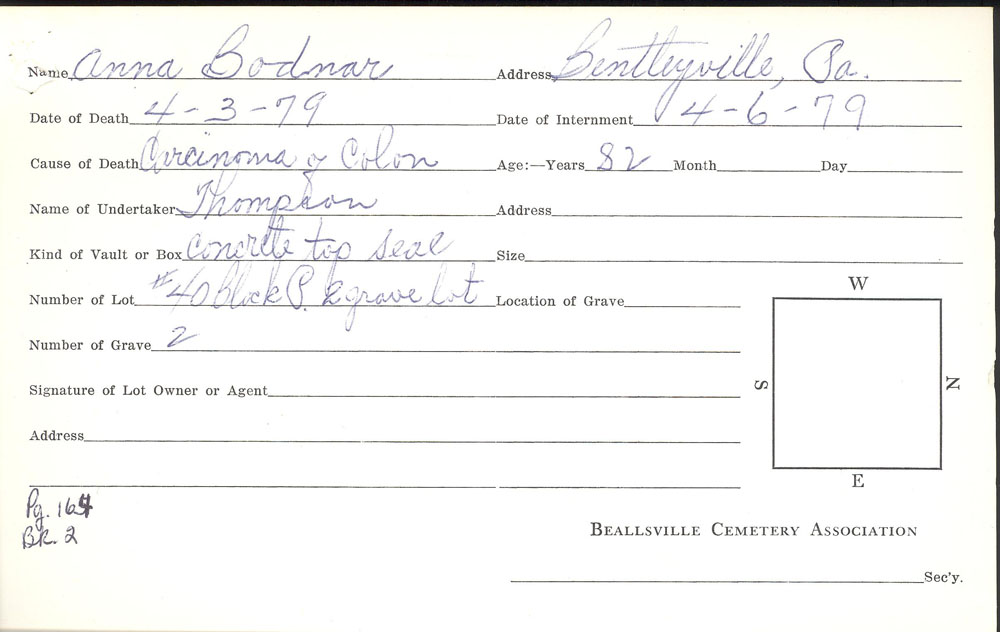 Name Anna Bodnar Address Bentleyville, Pa.
Date of Death 4-3-79 Date of Internment 4-6-79
Cause of Death Carcinoma of Colon Age:—Years 82 Month Day
Name of Undertaker Thompson Address
Kind of Vault or Box Concrete top seal Size
Number of Lot #40 Block P. 2 grave lot Location of Grave
W
Number of Grave 2
Signature of Lot Owner or Agent
S N
Address
E
Pg. 164
BK. 2
BEALLSVILLE CEMETERY ASSOCIATION
Sec'y.